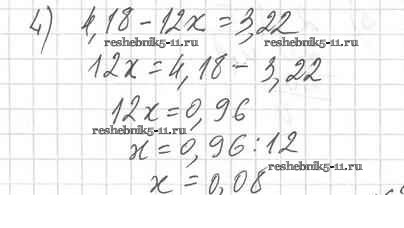 4) 4,18 - 12x = 3,22
reshebnik5-11.ru
12x = 4,18 - 3,22
12x = 0,96
reshebnik5-11.ru
x = 0,96 : 12
reshebnik5-11.ru
x = 0,08